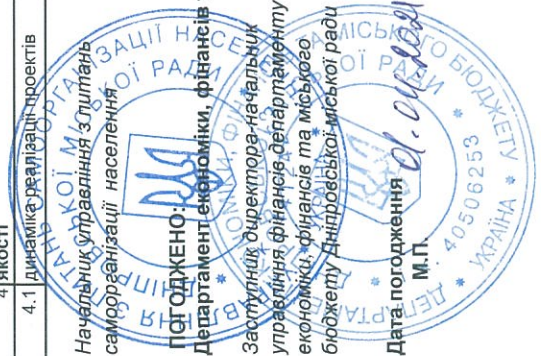 4 якості
4.1 динаміка реалізації проектів
Начальник управління з питань
самоорганізації населення
ПОГОДЖЕНО:
Департамент економіки, фінансів
Заступник директора-начальник
управління фінансів департаменту
економіки, фінансів та міського
бюджету Дніпровської міської ради
Дата погодження 01.04.2021
М.П.
40506253
УКРАЇНА